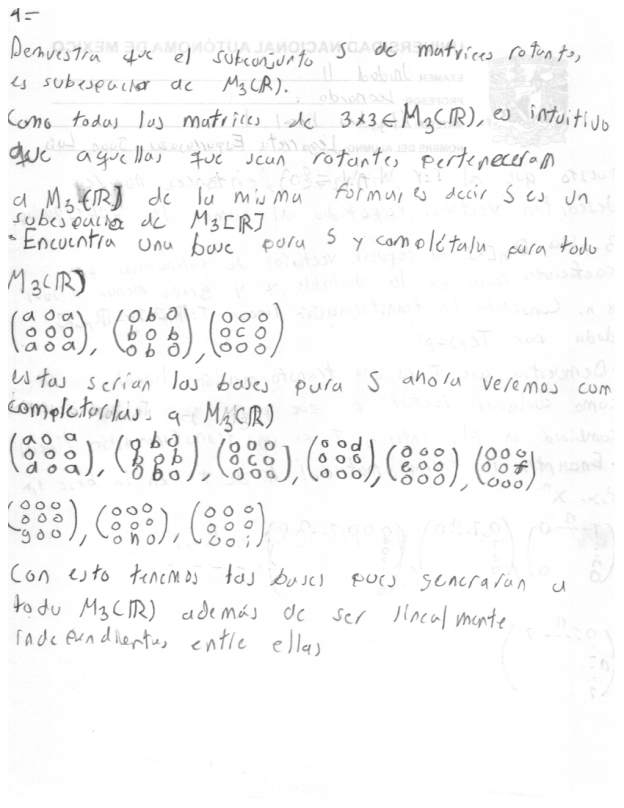 4=
Demuestra que el subconjunto S de matrices rotante,
es subespacio de M₃(ℝ).
Como todas las matrices de 3x3 ∈ M₃(ℝ), es intuitivo
que aquellas que sean rotantes perteneceran
a M₃(ℝ) de la misma forma es decir S es un
subespacio de M₃[ℝ]
· Encuentra una base para S y complétala para todo
M₃(ℝ)
(a 0 a / 0 0 0 / a 0 a), (0 b 0 / b 0 b / 0 b 0), (0 0 0 / 0 c 0 / 0 0 0)
estas serian las bases para S ahora veremos com
completarlas a M₃(ℝ)
(a 0 a / 0 0 0 / a 0 a), (0 b 0 / b 0 b / 0 b 0), (0 0 0 / 0 c 0 / 0 0 0), (0 0 d / 0 0 0 / 0 0 0), (0 0 0 / e 0 0 / 0 0 0), (0 0 0 / 0 0 f / 0 0 0)
(0 0 0 / 0 0 0 / g 0 0), (0 0 0 / 0 0 0 / 0 h 0), (0 0 0 / 0 0 0 / 0 0 i)
Con esto tenemos las bases pues generaran a
todo M₃(ℝ) además de ser linealmente
independientes entre ellas